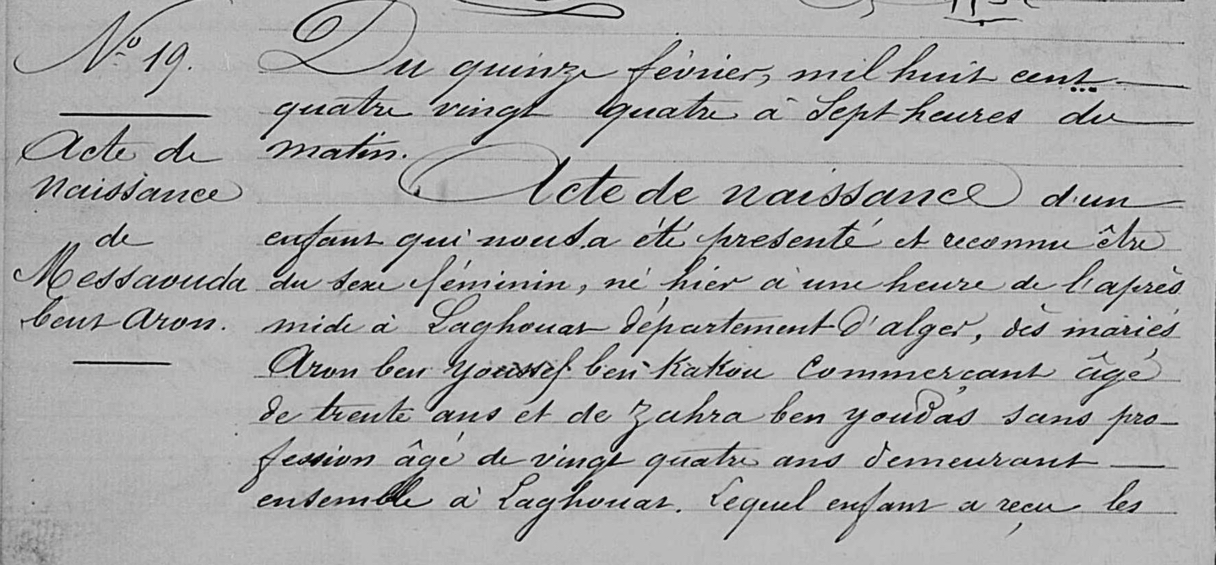 N° 19.
Acte de
naissance
de
Messaouda
bent Aron.
Du quinze février, mil huit cent
quatre vingt quatre à Sept heures du
matin.
Acte de naissance d'un
enfant qui nous a été presenté et reconnu être
du sexe féminin, né hier à une heure de l'après
midi à Laghouat département d'alger, dès mariés
Aron ben Youssef ben Kakou Commerçant âgé
de trente ans et de Zahra ben Youdas sans pro-
fession âgé de vingt quatre ans demeurant
ensemble à Laghouat. Lequel enfant a reçu les